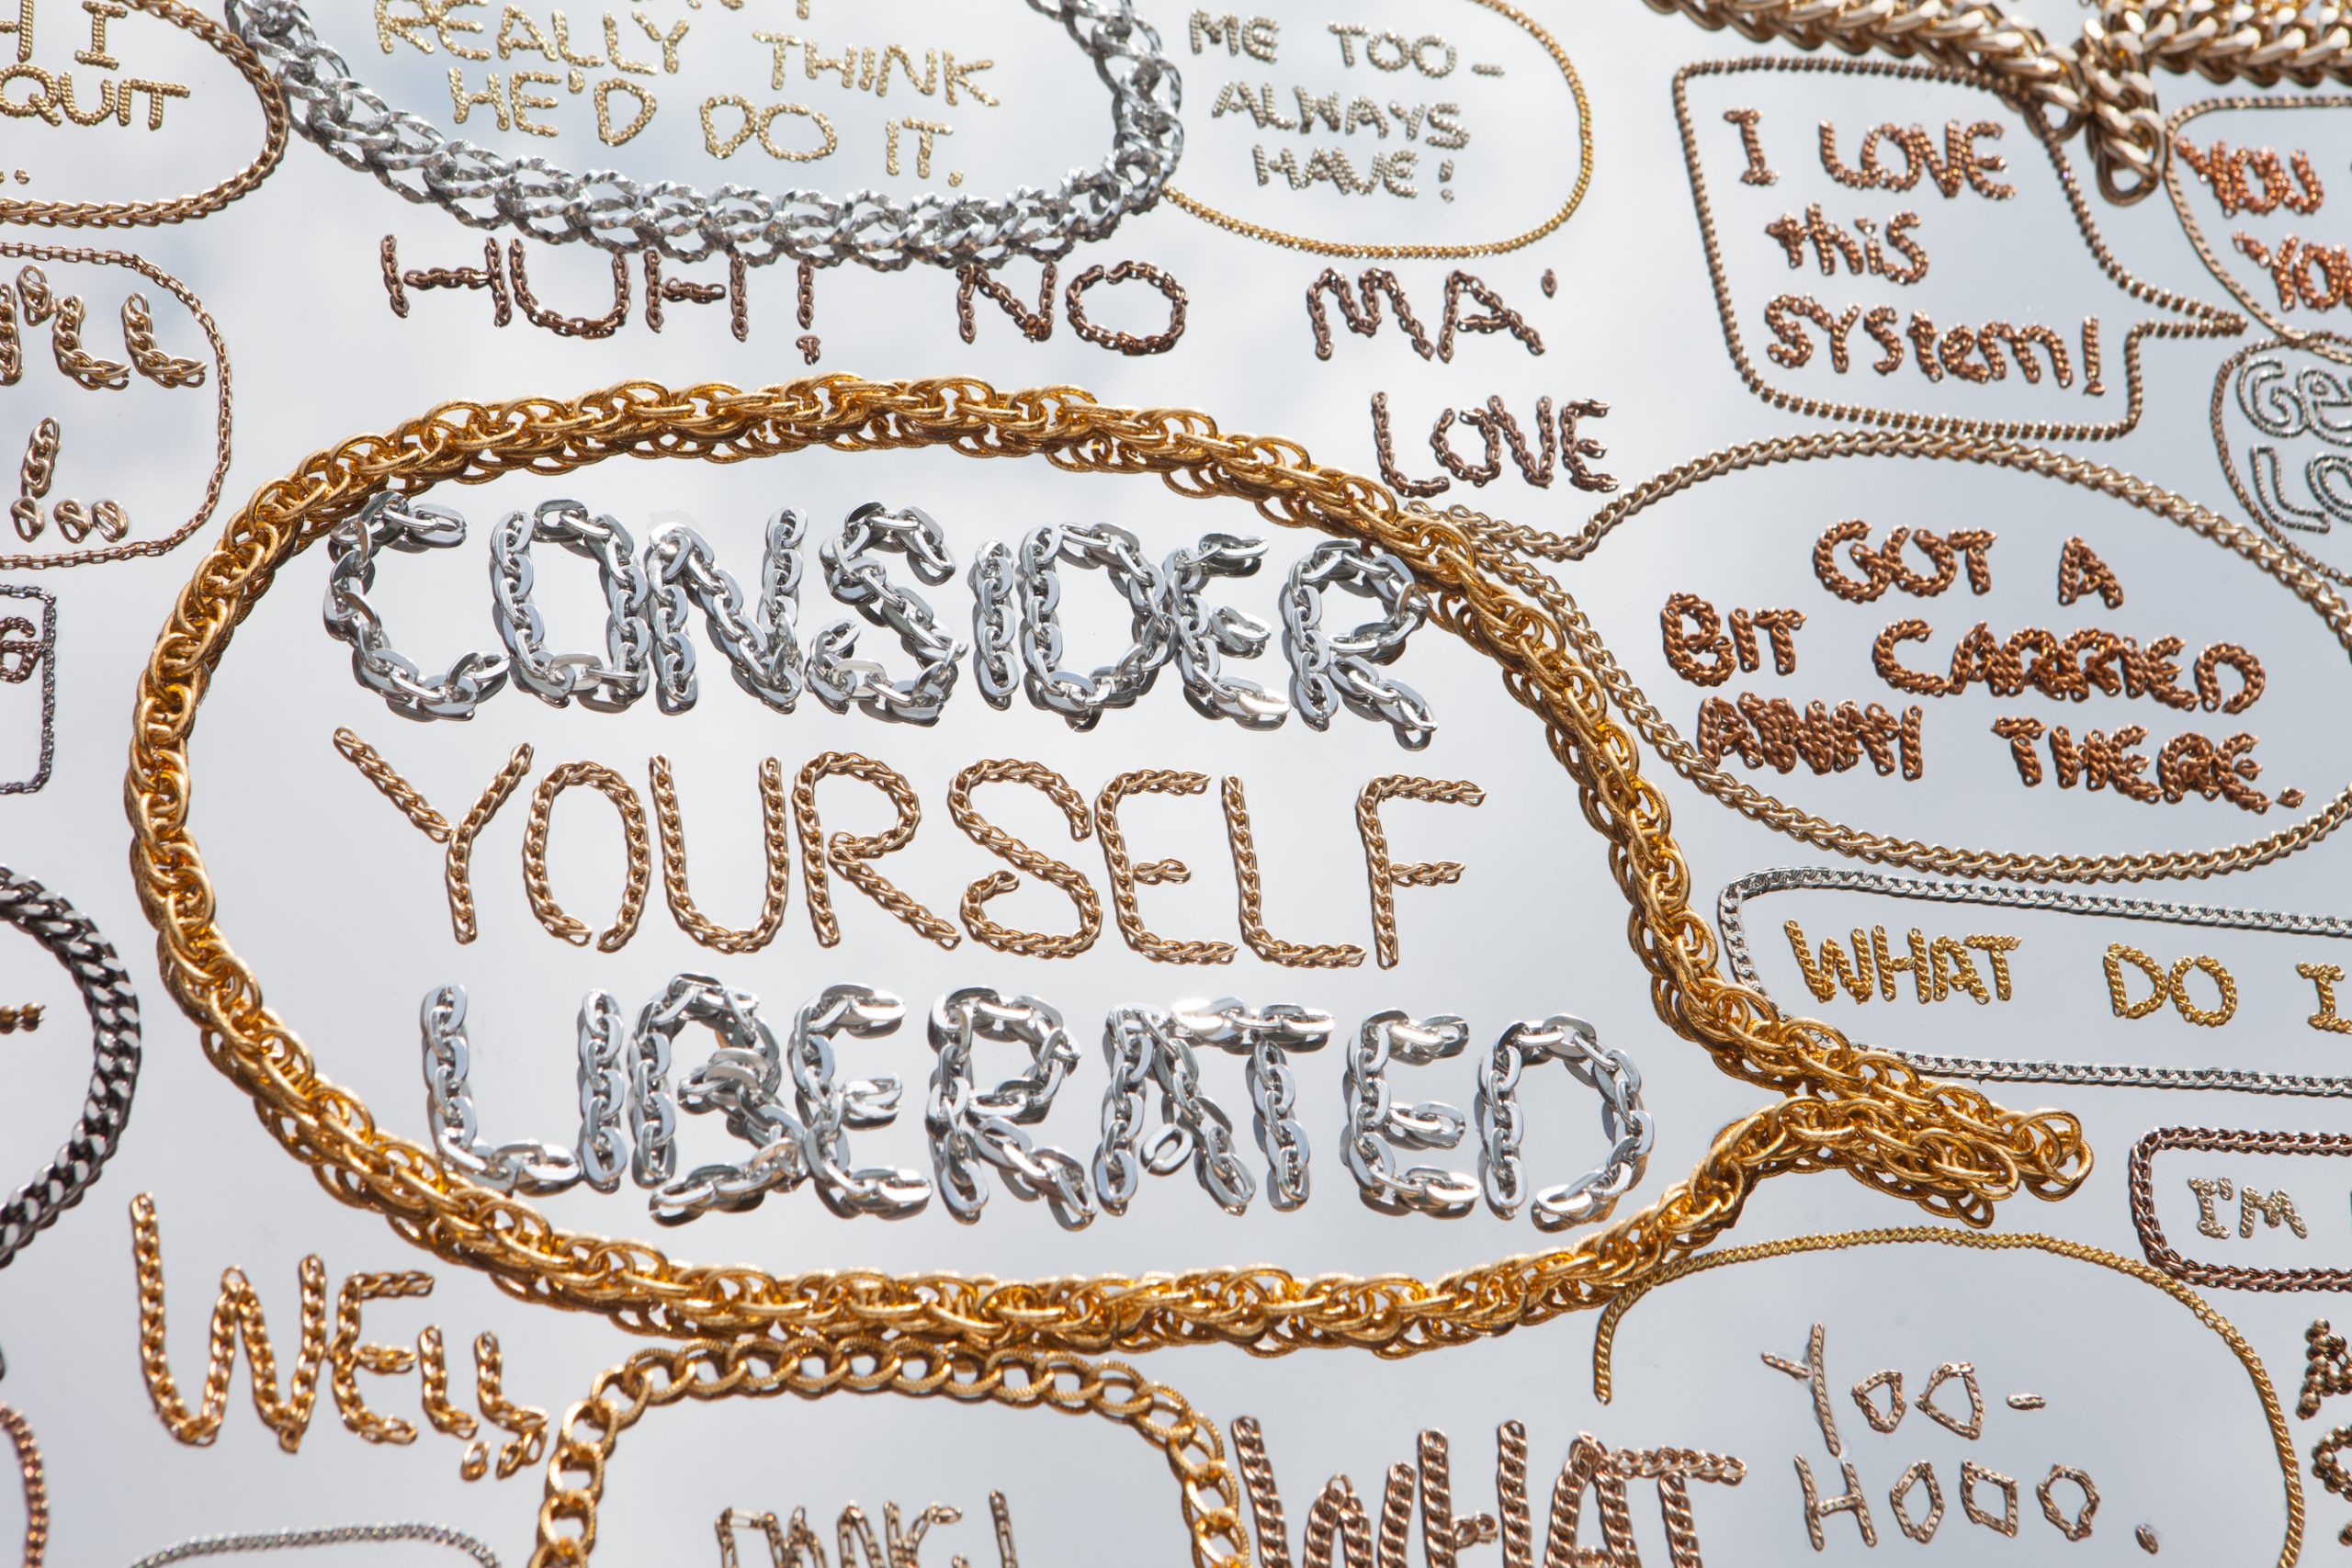 I
QUIT
REALLY THINK
HE'D DO IT.
ME TOO-
ALWAYS
HAVE!
I LOVE
thiS
SYStem!
YOU
HUH? NO MA'
LOVE
GOT A
BIT CARRIED
AWAY THERE.
CONSIDER
YOURSELF
LIBERATED
WHAT DO I
I'M
WELL
YOO-
HOOO.
WHAT